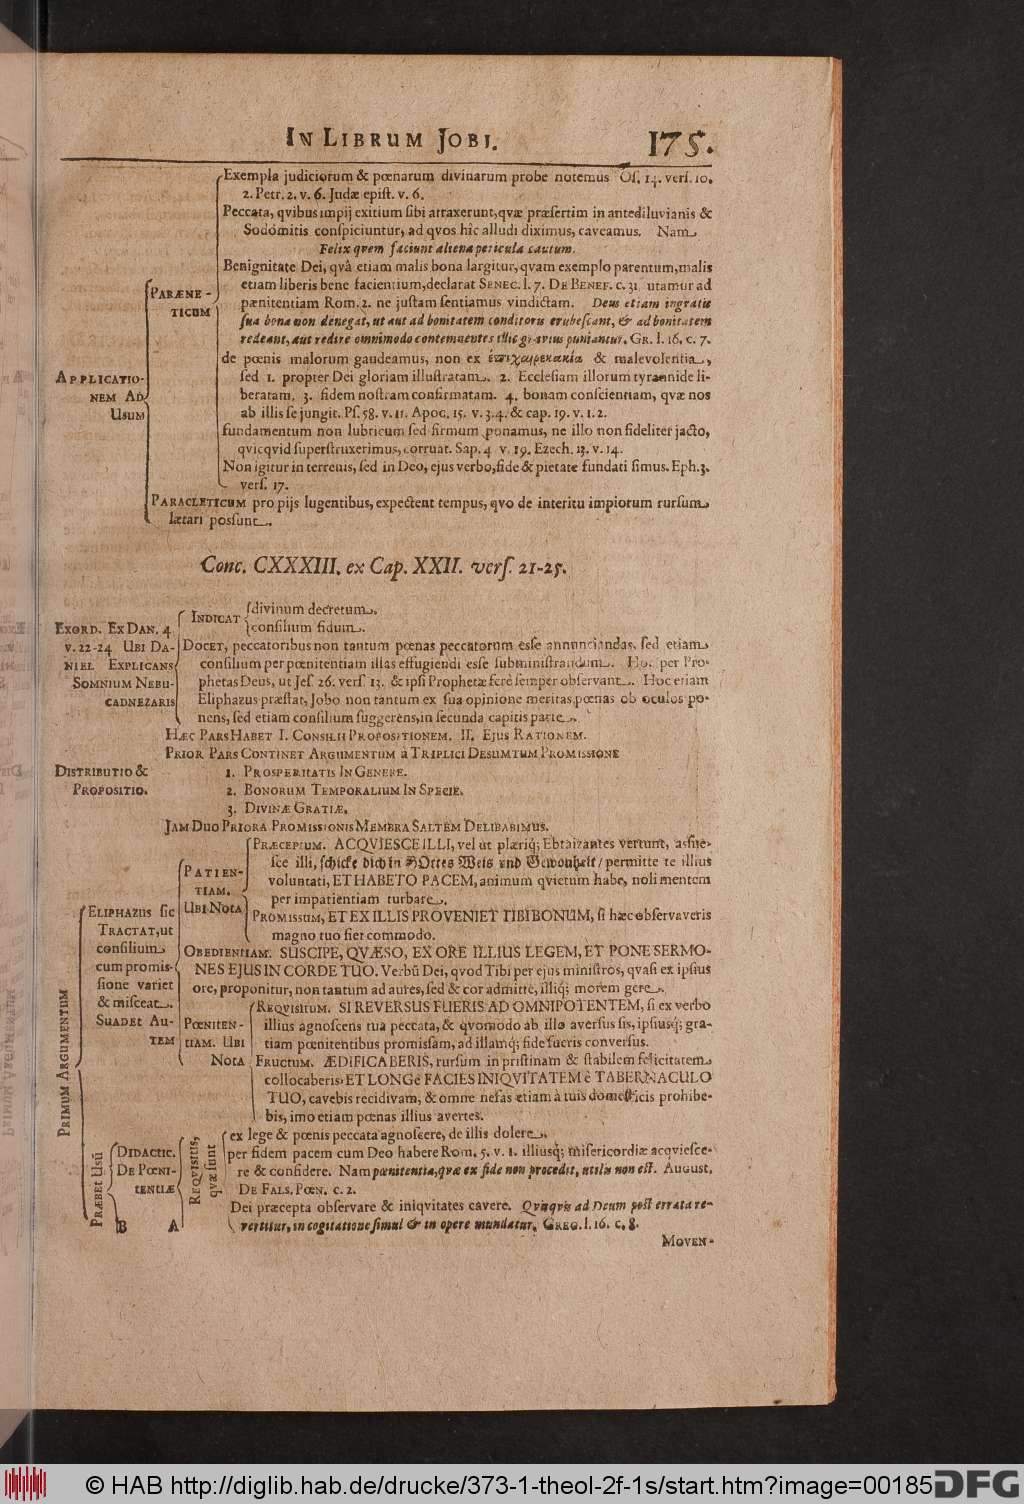 IN LIBRUM JOBI. 175.
Exempla judiciorum & pœnarum divinarum probe notemus Oſ. 14. verſ. 10.
2. Petr. 2. v. 6. Judæ epiſt. v. 6.
Peccata, qvibus impij exitium ſibi attraxerunt, qvæ præſertim in antediluvianis &
Sodomitis conſpiciuntur, ad qvos hic alludi diximus, caveamus. Nam
Felix qvem faciunt aliena pericula cautum.
Benignitate Dei, qvâ etiam malis bona largitur, qvam exemplo parentum, malis
etiam liberis bene facientium, declarat SENEC. l. 7. DE BENEF. c. 31 utamur ad
PARÆNE-
TICUM
pænitentiam Rom. 2. ne juſtam ſentiamus vindictam. Deus etiam ingratis
ſua bona non denegat, ut aut ad bonitatem conditoris erubeſcant, & ad bonitatem
redeant, aut redire omnimodo contemnentes illic gravius puniantur. GR. l. 16. c. 7.
de pœnis malorum gaudeamus, non ex ἐπιχαιρεκακία & malevolentia,
APPLICATIO-
NEM AD
USUM
ſed 1. propter Dei gloriam illuſtratam. 2. Eccleſiam illorum tyrannide li-
beratam. 3. fidem noſtram confirmatam. 4. bonam conſcientiam, qvæ nos
ab illis ſejungit. Pſ. 58. v. 11. Apoc. 15. v. 3. 4. & cap. 19. v. 1. 2.
fundamentum non lubricum ſed firmum ponamus, ne illo non fideliter jacto,
qvicqvid ſuperſtruxerimus, corruat. Sap. 4 v. 19. Ezech. 13. v. 14.
Non igitur in terrenis, ſed in Deo, ejus verbo, fide & pietate fundati ſimus. Eph. 3.
verſ. 17.
PARACLETICUM pro pijs lugentibus, expectent tempus, qvo de interitu impiorum rurſum
lætari poſſunt.
Conc. CXXXIII. ex Cap. XXII. verſ. 21-25.
EXORD. EX DAN. 4
v. 22-24 UBI DA-
NIEL EXPLICANS
SOMNIUM NEBU-
CADNEZARIS
INDICAT
divinum decretum.
conſilium fidum.
DOCET, peccatoribus non tantum pœnas peccatorum esſe annunciandas, ſed etiam
conſilium per pœnitentiam illas effugiendi esſe ſubminiſtrandum. Hoc per Pro-
phetas Deus, ut Jeſ. 26. verſ. 13. & ipſi Prophetæ ferè ſemper obſervant. Hoc etiam
Eliphazus præſtat, Jobo non tantum ex ſua opinione meritas pœnas ob oculos po-
nens, ſed etiam conſilium ſuggerens, in ſecunda capitis parte.
HÆC PARS HABET I. CONSILII PROPOSITIONEM. II. EJUS RATIONEM.
PRIOR PARS CONTINET ARGUMENTUM à TRIPLICI DESUMTUM PROMISSIONE
DISTRIBUTIO &
PROPOSITIO.
1. PROSPERITATIS IN GENERE.
2. BONORUM TEMPORALIUM IN SPECIE.
3. DIVINÆ GRATIÆ.
JAM DUO PRIORA PROMISSIONIS MEMBRA SALTEM DELIBABIMUS.
PRIMUM ARGUMENTUM
ELIPHAZUS ſic
TRACTAT, ut
conſilium
cum promis-
ſione variet
& miſceat.
SUADET AU-
TEM
PATIEN-
TIAM.
UBI NOTA
PRÆCEPTUM. ACQVIESCE ILLI, vel ut plæriq; Ebraizantes vertunt, asſue-
ſce illi, ſchicke dich in GOttes Weis und Gewonheit / permitte te illius
voluntati, ET HABETO PACEM, animum qvietum habe, noli mentem
per impatientiam turbare.
PROMISSUM, ET EX ILLIS PROVENIET TIBI BONUM, ſi hæc obſervaveris
magno tuo fiet commodo.
OBEDIENTIAM. SUSCIPE, QVÆSO, EX ORE ILLIUS LEGEM, ET PONE SERMO-
NES EJUS IN CORDE TUO. Verbũ Dei, qvod Tibi per ejus miniſtros, qvaſi ex ipſius
ore, proponitur, non tantum ad aures, ſed & cor admitte, illiq; morem gere.
PŒNITEN-
TIAM. UBI
NOTA
REQVISITUM. SI REVERSUS FUERIS AD OMNIPOTENTEM, ſi ex verbo
illius agnoſcens tua peccata, & qvomodo ab illo averſus ſis, ipſiusq; gra-
tiam pœnitentibus promiſſam, ad illamq; fide fueris converſus.
FRUCTUM. ÆDIFICABERIS, rurſum in priſtinam & ſtabilem felicitatem
collocaberis: ET LONGè FACIES INIQVITATEM è TABERNACULO
TUO, cavebis recidivam, & omne nefas etiam à tuis domeſticis prohibe-
bis, imo etiam pœnas illius avertes.
PRÆBET USŨ
DIDACTIC.
DE PŒNI-
TENTIÆ
REQVISITIS,
qvæ ſunt
ex lege & pœnis peccata agnoſcere, de illis dolere,
per fidem pacem cum Deo habere Rom. 5. v. 1. illiusq; miſericordiæ acqvieſce-
re & confidere. Nam pœnitentia, qvæ ex fide non procedit, utilis non eſt. AUGUST.
DE FALS. PŒN. c. 2.
Dei præcepta obſervare & iniqvitates cavere. Qvisqvis ad Deum poſt errata re-
vertitur, in cogitatione ſimul & in opere mundatur. GREG. l. 16. c. 8.
B A
MOVEN-
© HAB http://diglib.hab.de/drucke/373-1-theol-2f-1s/start.htm?image=00185
DFG